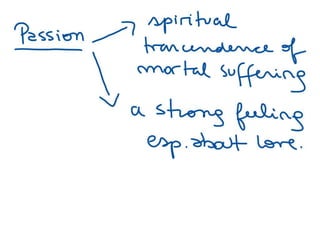 Passion
spiritual
trancendence of
mortal suffering
a strong feeling
esp. about love.